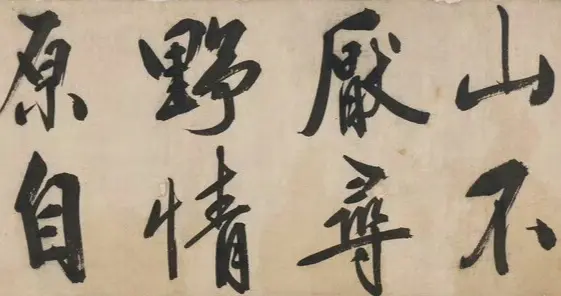 山不
厭尋
野情
原自